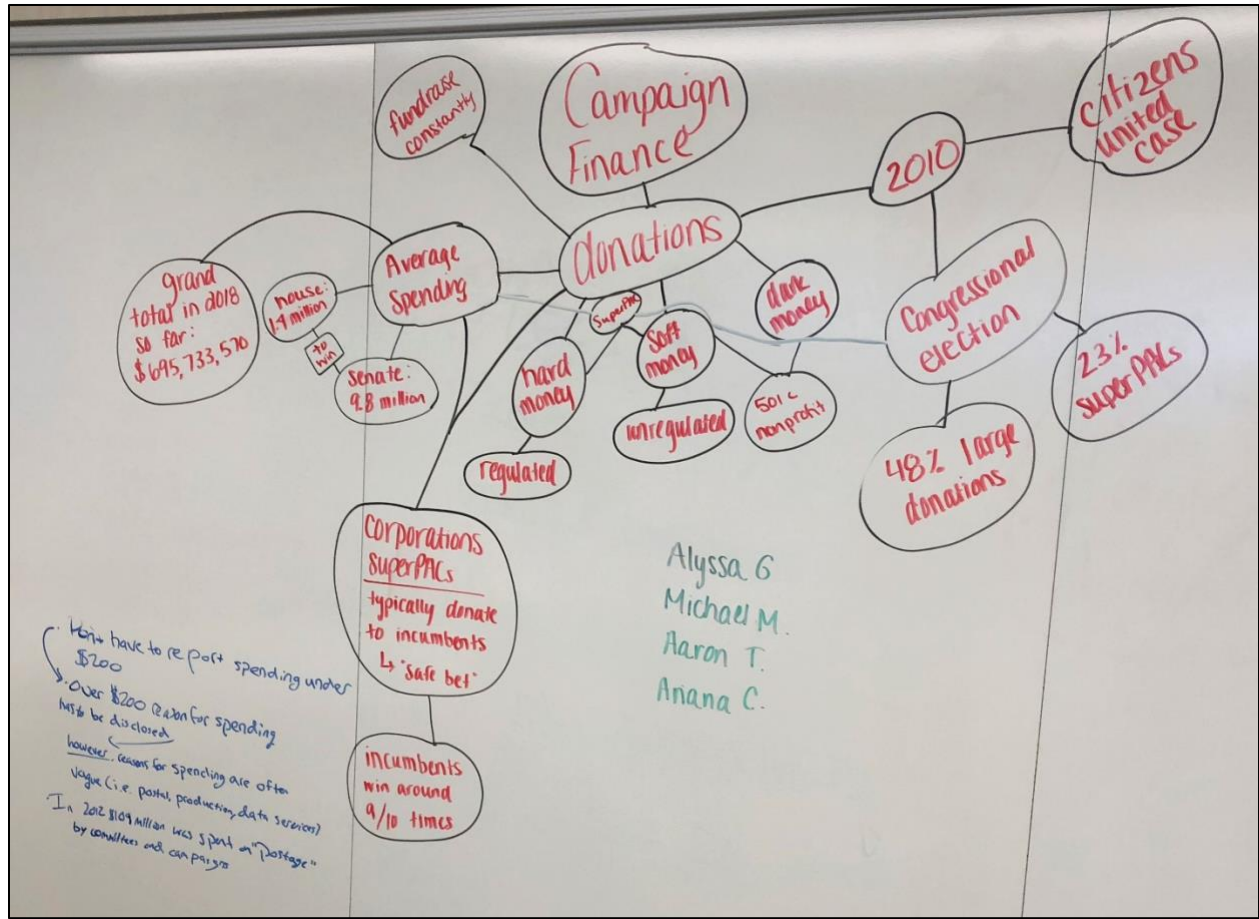 Campaign
Finance
fundraise
constantly
donations
2010
citizens
united
case
Average
Spending
grand
total in 2018
so far:
$695,733,570
house:
1.4 million
to
win
senate:
9.8 million
SuperPAC
hard
money
regulated
soft
money
unregulated
dark
money
501c
nonprofit
Congressional
election
23%
superPACs
48% large
donations
corporations
superPACs
typically donate
to incumbents
↳ "safe bet"
incumbents
win around
9/10 times
Alyssa G
Michael M.
Aaron T.
Ariana C.
· Don't have to report spending under
$200
· Over $200 reason for spending
has to be disclosed
however, reasons for spending are often
vague (i.e. postal, production, data services)
· In 2012 $109 million was spent on "postage"
by committees and campaigns